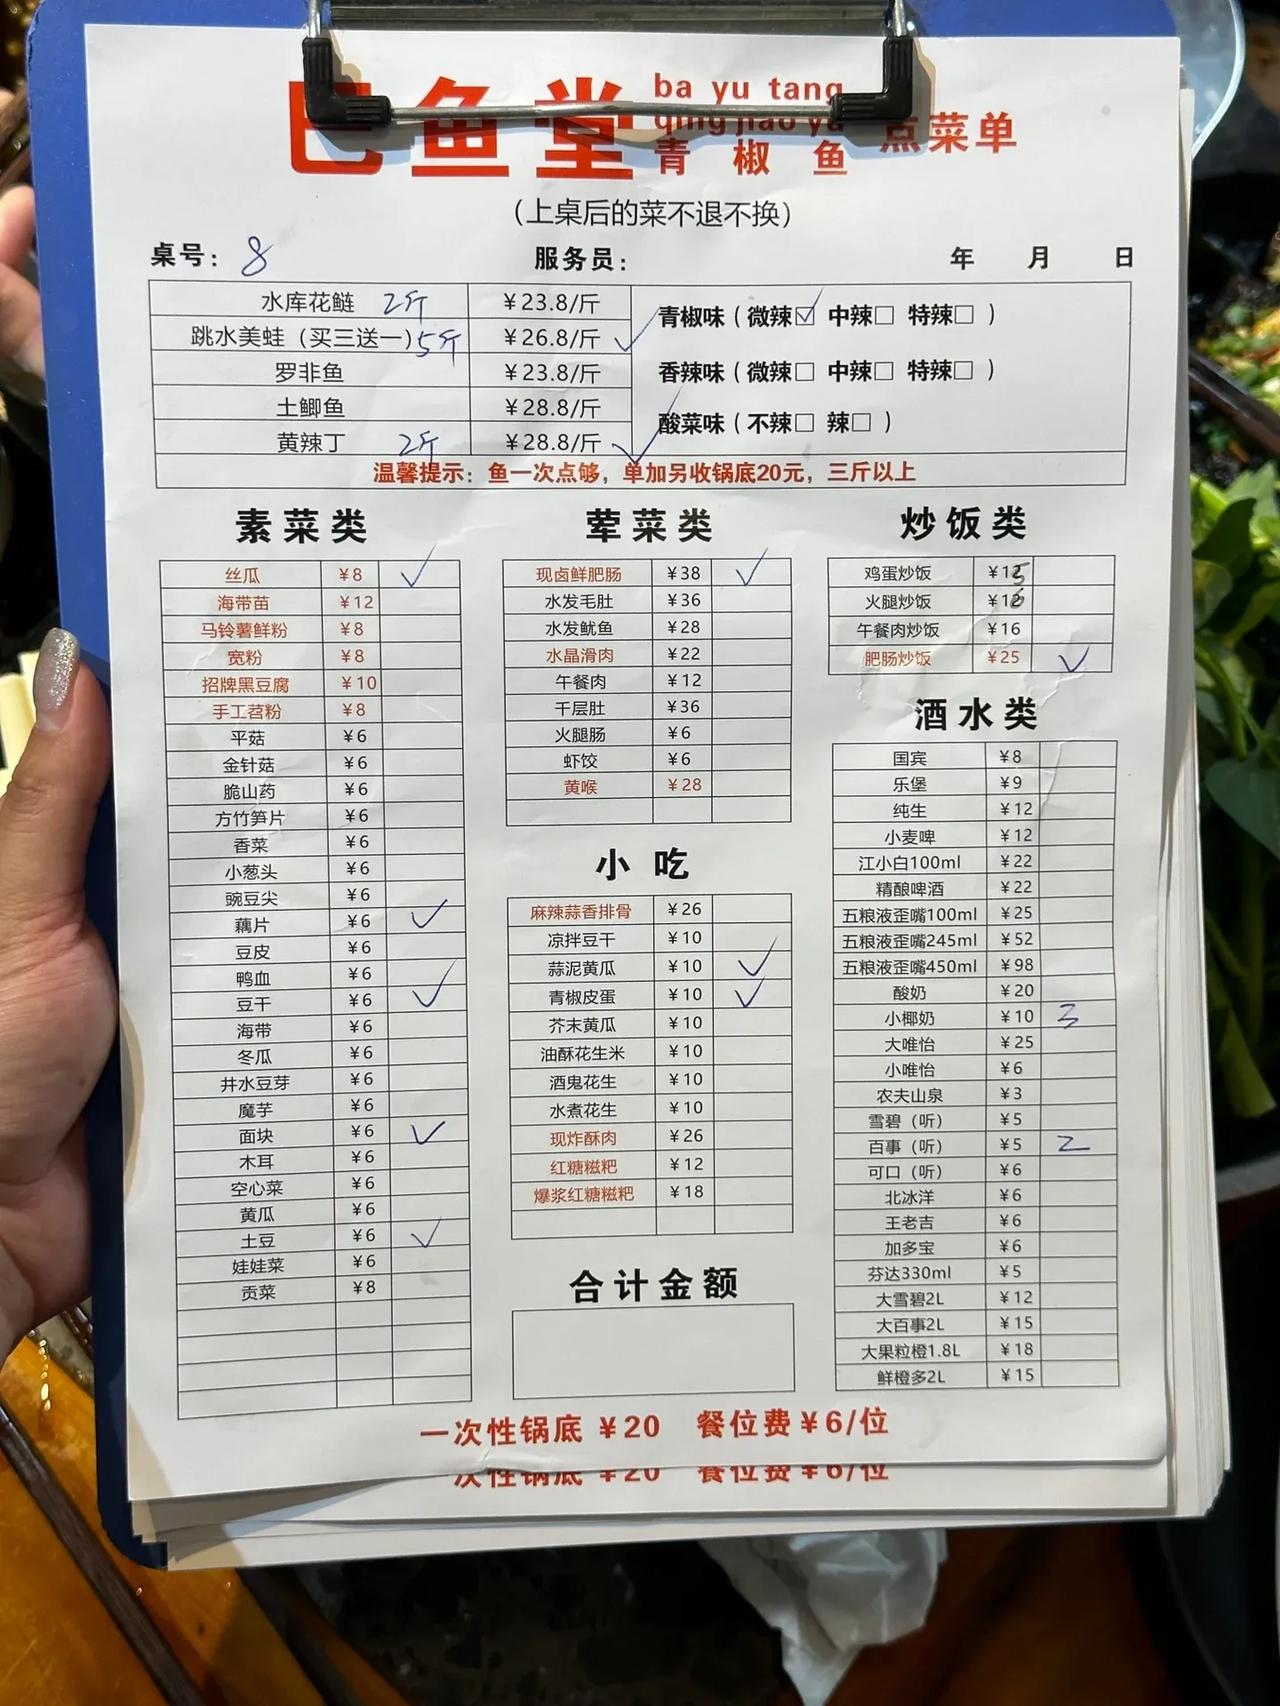 巴鱼堂 ba yu tang
qing jiao yu
青椒鱼 点菜单
（上桌后的菜不退不换）
桌号：8 服务员： 年 月 日
水库花鲢 2斤 ¥23.8/斤
跳水美蛙（买三送一）5斤 ¥26.8/斤 ✓
罗非鱼 ¥23.8/斤
土鲫鱼 ¥28.8/斤
黄辣丁 2斤 ¥28.8/斤 ✓
青椒味（微辣☑ 中辣□ 特辣□ ）
香辣味（微辣□ 中辣□ 特辣□ ）
酸菜味（不辣□ 辣□ ）
温馨提示：鱼一次点够，单加另收锅底20元，三斤以上
素菜类
丝瓜 ¥8 ✓
海带苗 ¥12
马铃薯鲜粉 ¥8
宽粉 ¥8
招牌黑豆腐 ¥10
手工苕粉 ¥8
平菇 ¥6
金针菇 ¥6
脆山药 ¥6
方竹笋片 ¥6
香菜 ¥6
小葱头 ¥6
豌豆尖 ¥6
藕片 ¥6 ✓
豆皮 ¥6
鸭血 ¥6
豆干 ¥6 ✓
海带 ¥6
冬瓜 ¥6
井水豆芽 ¥6
魔芋 ¥6
面块 ¥6 ✓
木耳 ¥6
空心菜 ¥6
黄瓜 ¥6
土豆 ¥6 ✓
娃娃菜 ¥6
贡菜 ¥8
荤菜类
现卤鲜肥肠 ¥38 ✓
水发毛肚 ¥36
水发鱿鱼 ¥28
水晶滑肉 ¥22
午餐肉 ¥12
千层肚 ¥36
火腿肠 ¥6
虾饺 ¥6
黄喉 ¥28
小吃
麻辣蒜香排骨 ¥26
凉拌豆干 ¥10
蒜泥黄瓜 ¥10 ✓
青椒皮蛋 ¥10 ✓
芥末黄瓜 ¥10
油酥花生米 ¥10
酒鬼花生 ¥10
水煮花生 ¥10
现炸酥肉 ¥26
红糖糍粑 ¥12
爆浆红糖糍粑 ¥18
合计金额
炒饭类
鸡蛋炒饭 ¥15
火腿炒饭 ¥16
午餐肉炒饭 ¥16
肥肠炒饭 ¥25 ✓
酒水类
国宾 ¥8
乐堡 ¥9
纯生 ¥12
小麦啤 ¥12
江小白100ml ¥22
精酿啤酒 ¥22
五粮液歪嘴100ml ¥25
五粮液歪嘴245ml ¥52
五粮液歪嘴450ml ¥98
酸奶 ¥20
小椰奶 ¥10 3
大唯怡 ¥25
小唯怡 ¥6
农夫山泉 ¥3
雪碧（听） ¥5
百事（听） ¥5 2
可口（听） ¥6
北冰洋 ¥6
王老吉 ¥6
加多宝 ¥6
芬达330ml ¥5
大雪碧2L ¥12
大百事2L ¥15
大果粒橙1.8L ¥18
鲜橙多2L ¥15
一次性锅底 ¥20 餐位费¥6/位
次性锅底 ¥20 餐位费¥6/位